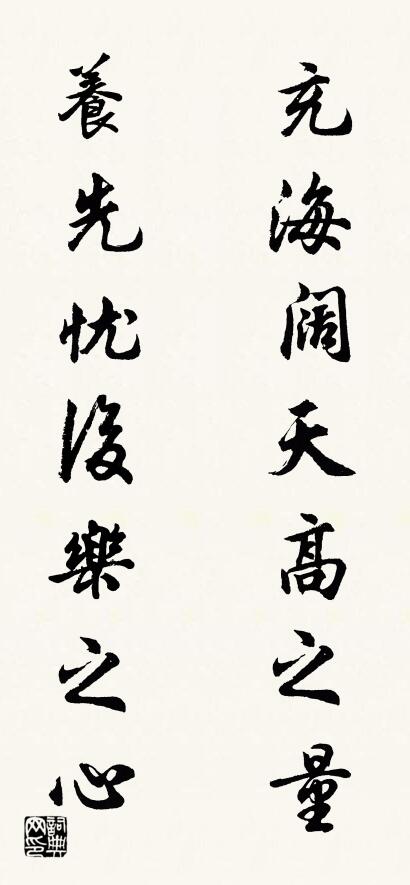 充海阔天高之量
養先忧後樂之心
詞典网印